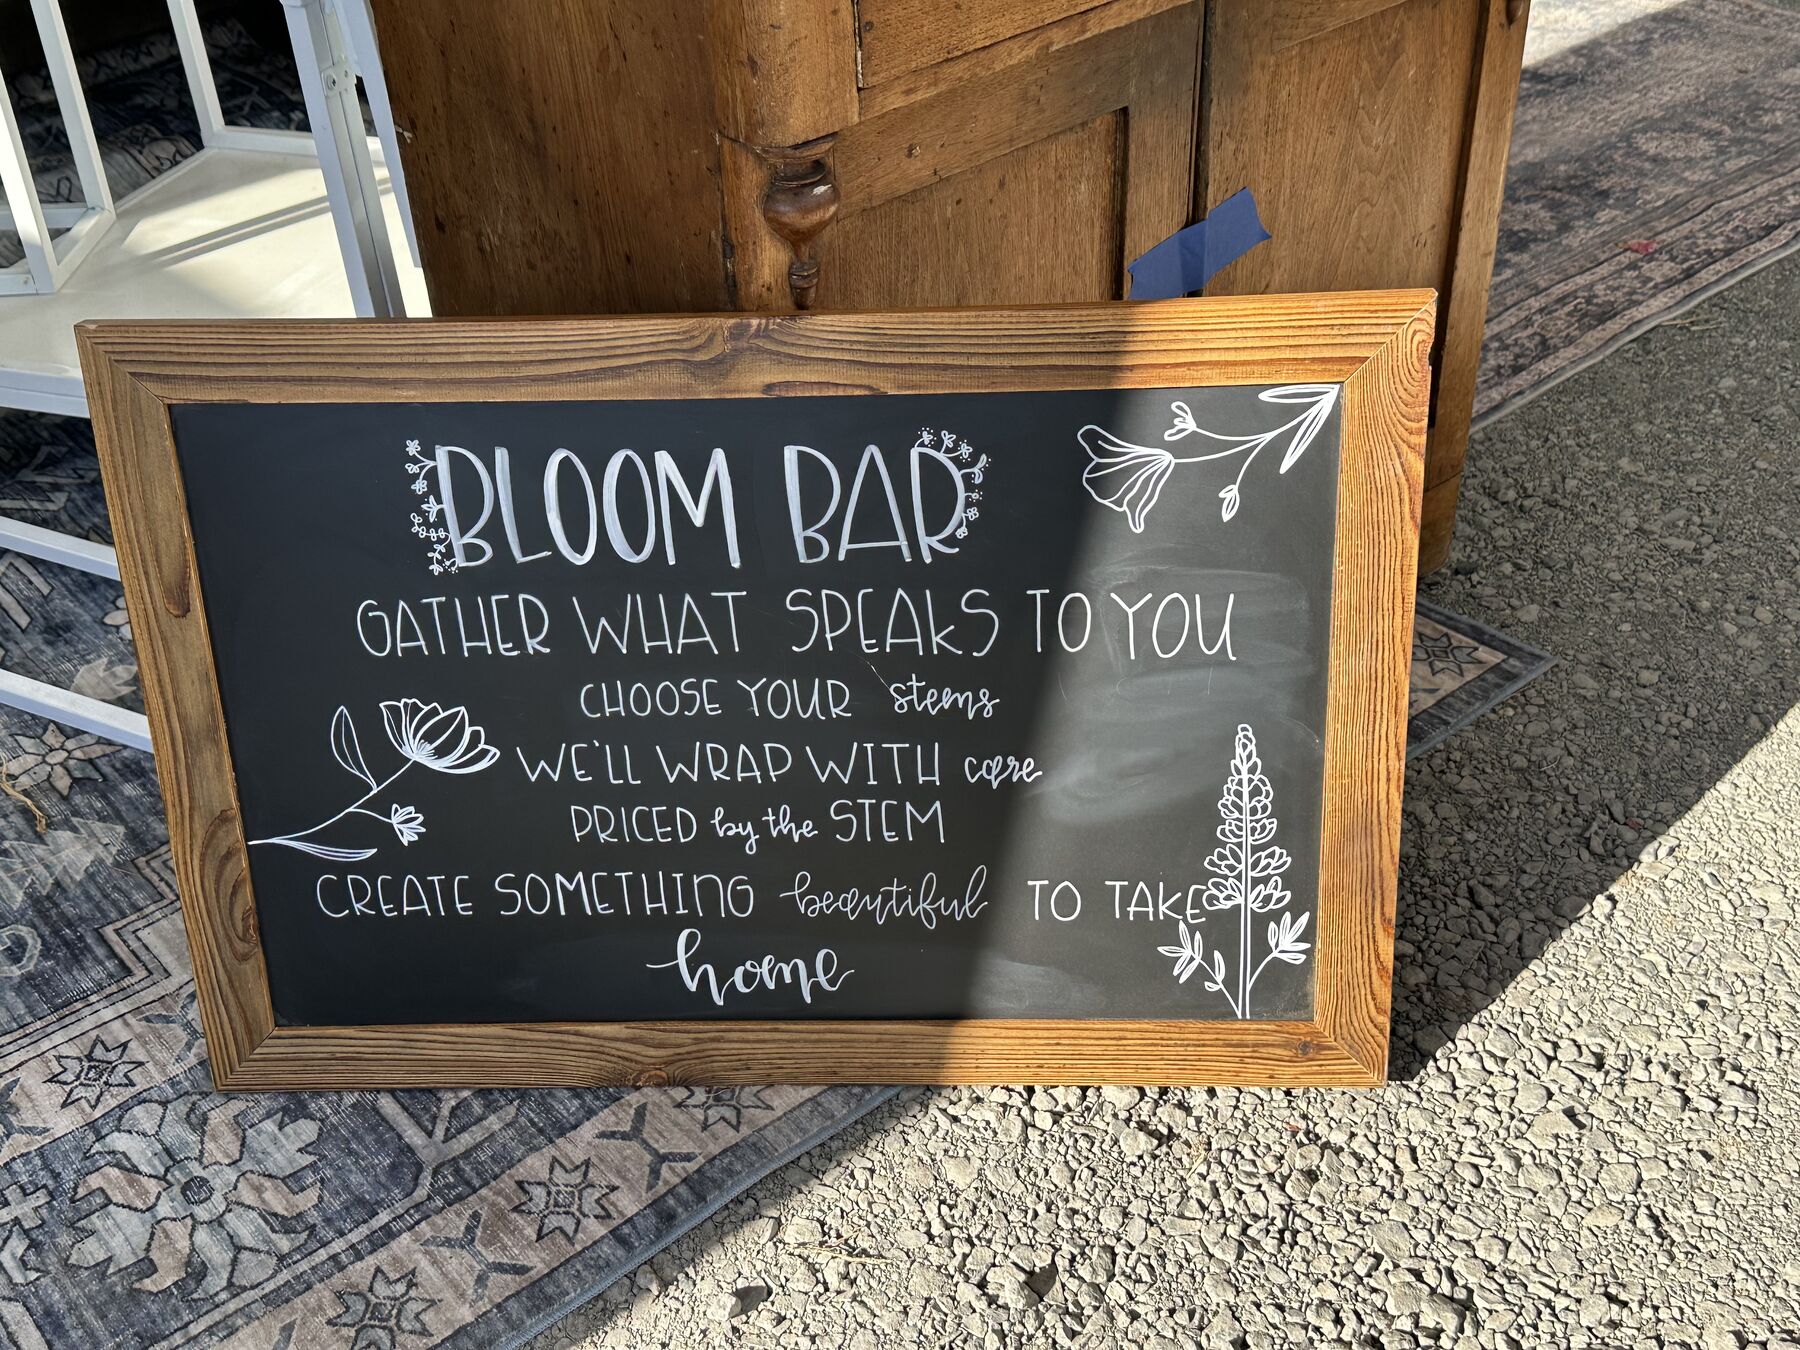 BLOOM BAR
GATHER WHAT SPEAKS TO YOU
CHOOSE YOUR stems
WE'LL WRAP WITH care
PRICED by the STEM
CREATE SOMETHING beautiful TO TAKE
home